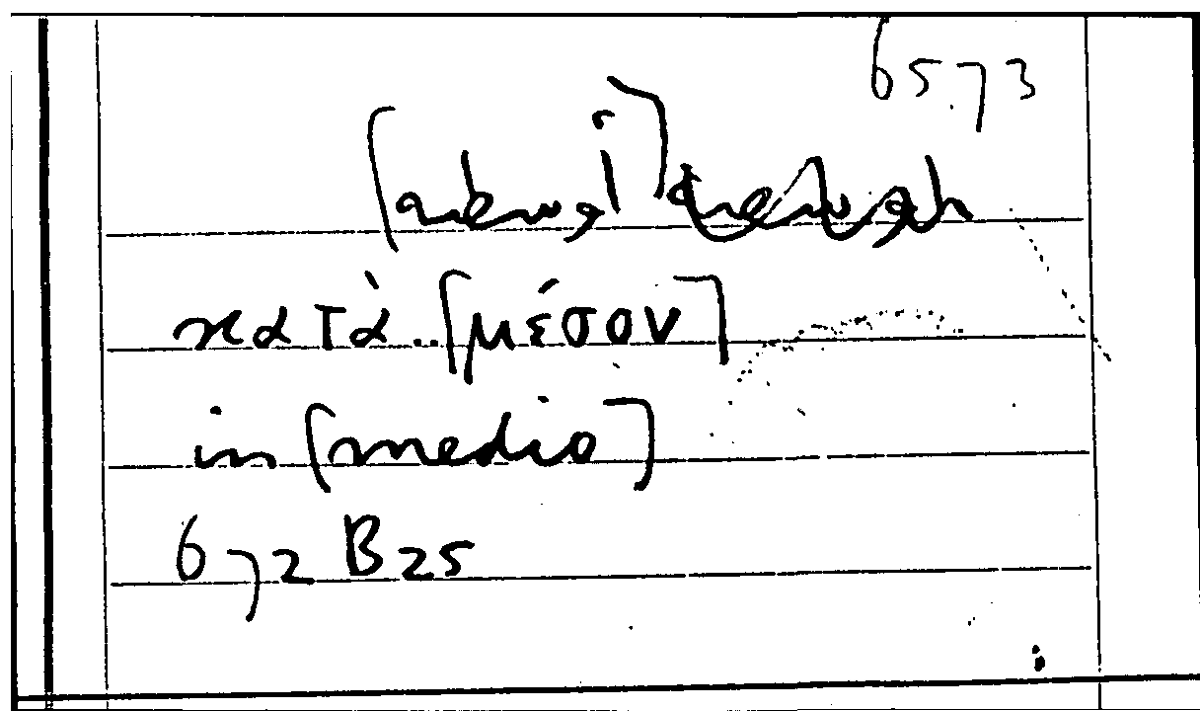 6573
κατὰ.. [μέσον]
in [medio]
672 B25